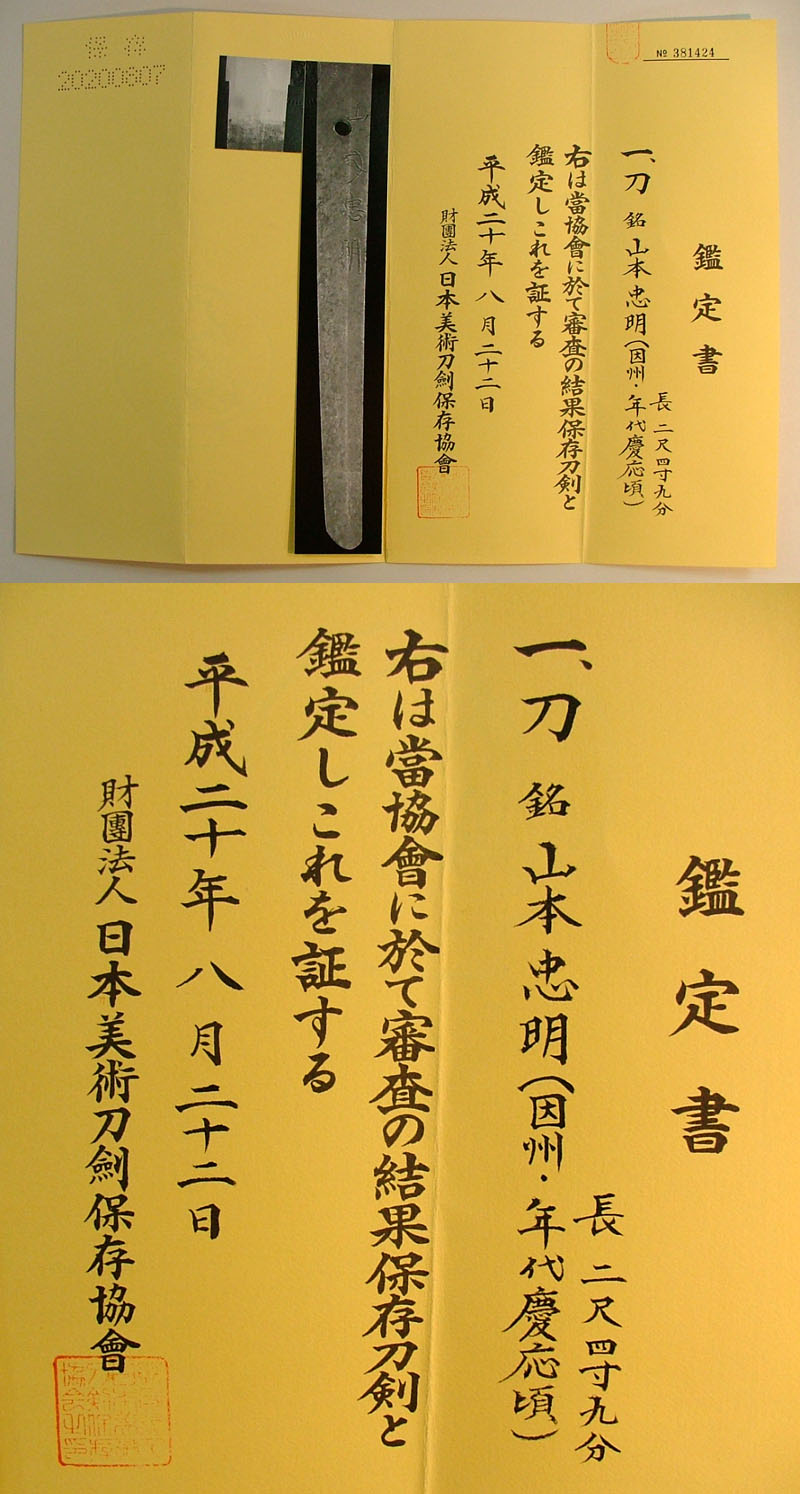 № 381424
鑑定書
一、刀 銘 山本忠明(因州・年代慶応頃)
長二尺四寸九分
右は當協會に於て審査の結果保存刀剣と
鑑定しこれを証する
平成二十年八月二十二日
財團法人日本美術刀劍保存協會
山本忠明
保存
20200807
鑑定書
長二尺四寸九分
一、刀 銘 山本忠明(因州・年代慶応頃)
右は當協會に於て審査の結果保存刀剣と
鑑定しこれを証する
平成二十年八月二十二日
財團法人日本美術刀劍保存協會